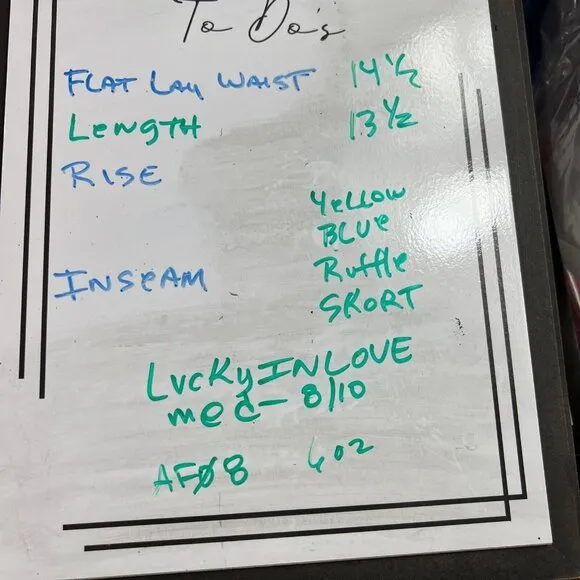 To Do's
FLAT LAY WAIST 14 1/2
LENGTH 13 1/2
RISE
YELLOW
BLUE
Ruffle
INSEAM
SKORT
LUCKY IN LOVE
med - 8/10
AFØ8 6 oz